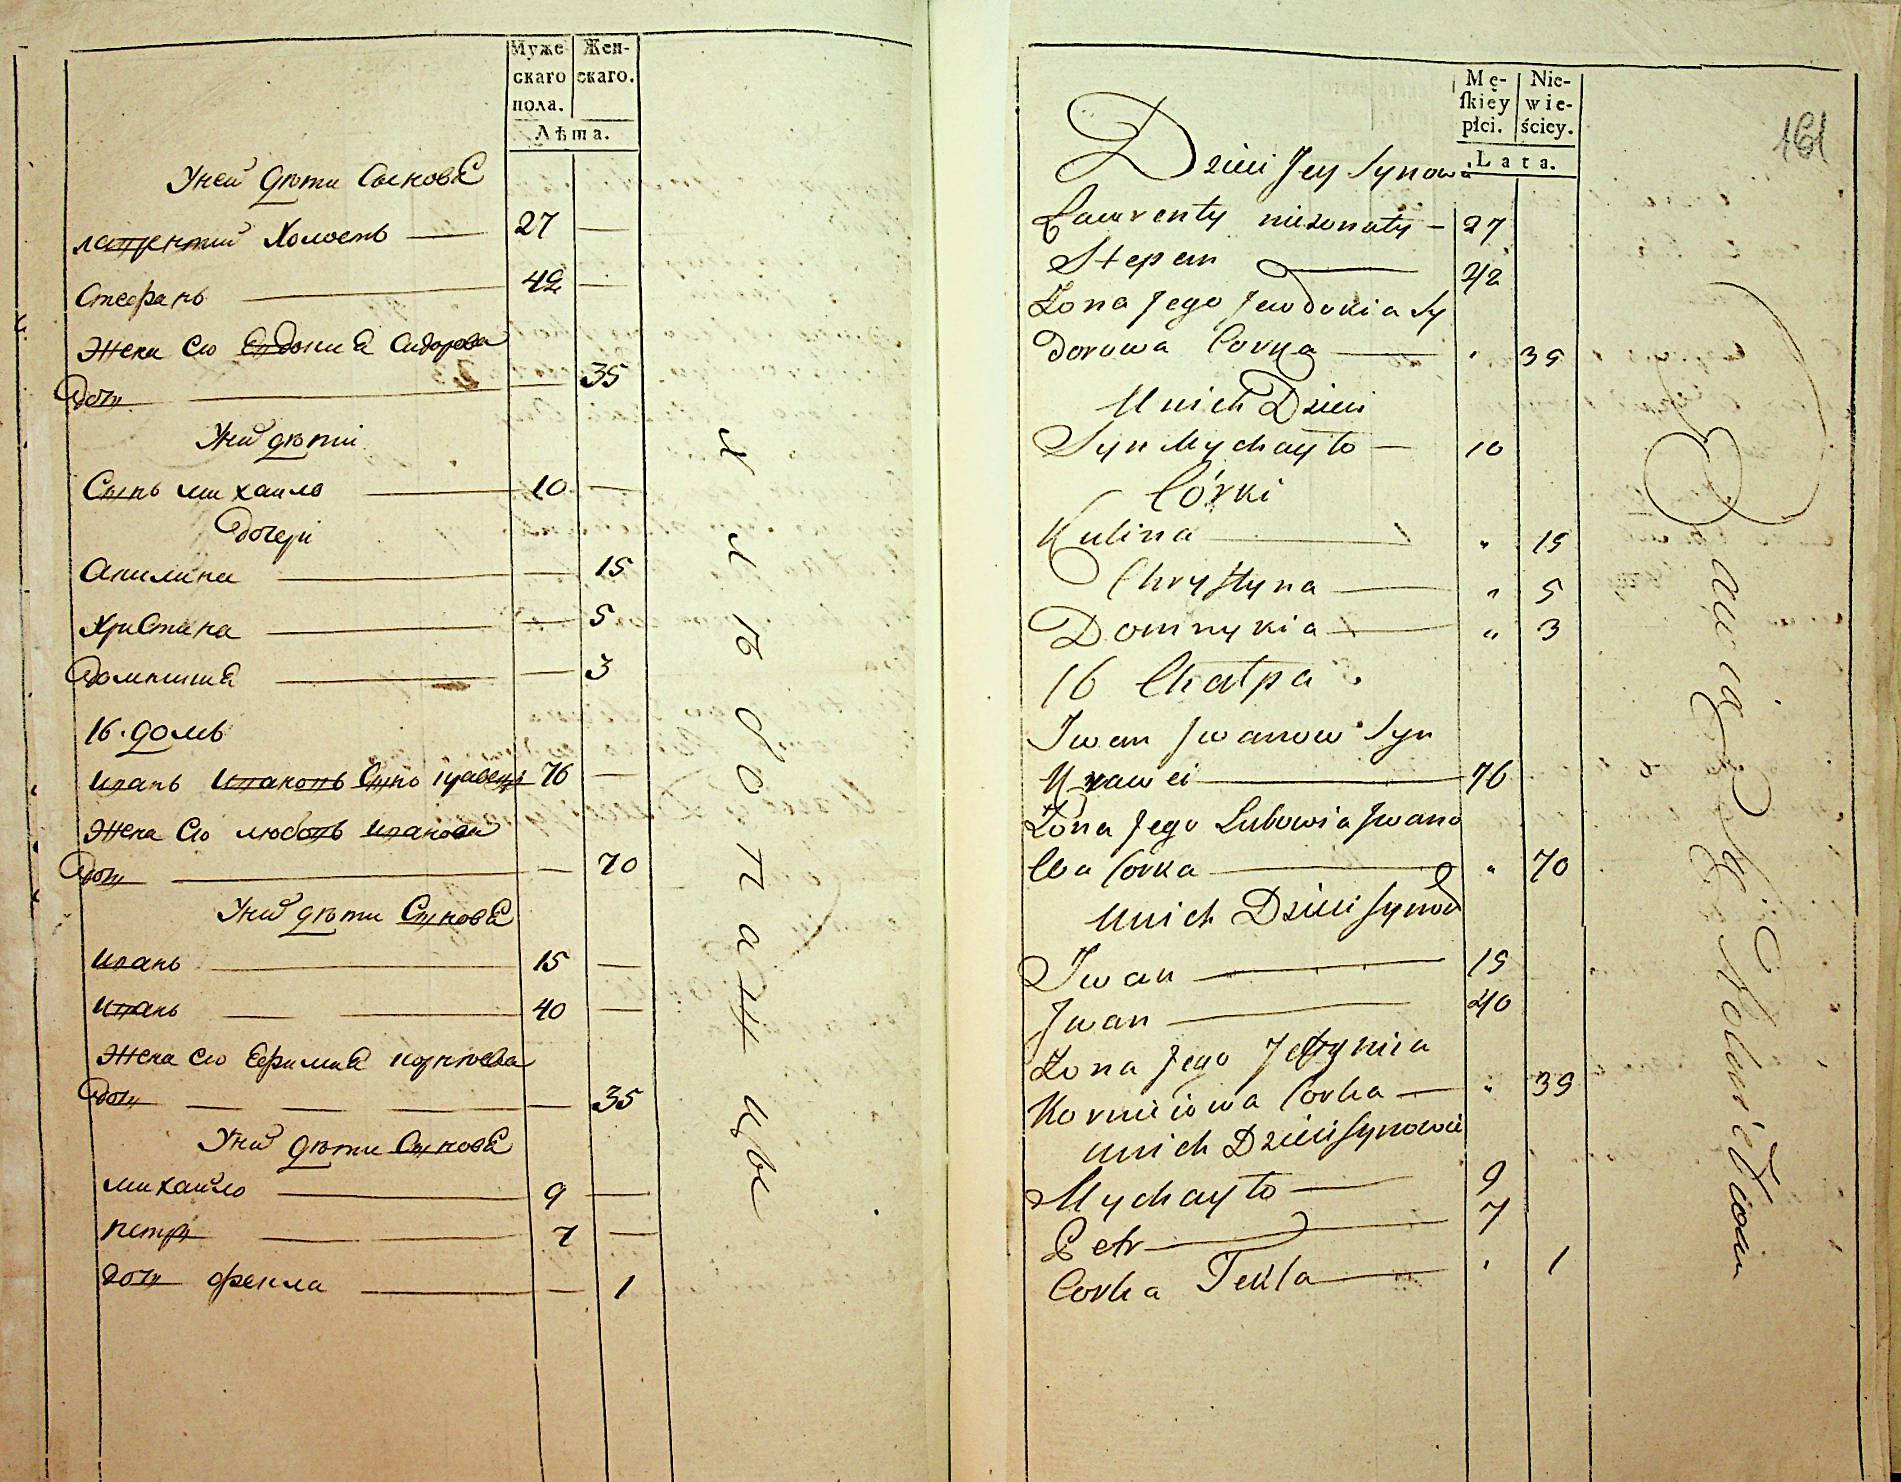 Муже
скаго
пола.
Жен-
скаго.
Лѣта.
Уней дѣти Сынове
лаврентий Холостъ 27 —
Стефанъ 42 —
Жена Его Евдокиа Сидорова
дочь 35
Уних дѣти
Сынъ михаило 10 —
дочери
Акилина — 15
Христина — 5
Домникиа — 3
16. домъ
иванъ Ивановъ Сынъ кравецъ 76 —
Жена Его любовь иванова
дочь — 70
Уних дѣти Сынове
иванъ 15 —
иванъ 40 —
Жена Его Ефимиа корнеева
дочь — 35
Уних дѣти Сынове
михайло 9 —
петръ 7 —
дочь фекла — 1
хлѣбопашцы
161
Mę-
skiey
płci.
Nie-
wie-
ściey.
Lata.
Dzieci Jey Synow
Lawrenty niezonaty — 27
Stepan 42
Żona Jego Jewdokia Sy
dorowa Corka " 35
Unich Dzieci
Syn Mychayło — 10
Córki
Kulina " 15
Chrystyna " 5
Domnykia " 3
16 Chałpa
Iwan Jwanow Syn
Krawci 76
Żona Jego Lubowia Jwano
wa Corka " 70
Unich Dzieci Synow
Iwan 15
Jwan 40
Żona Jego Jefymia
Korniiowa Corka — " 35
Unich Dzieci Synowie
Mychayło 9
Petr 7
Corka Tekla " 1